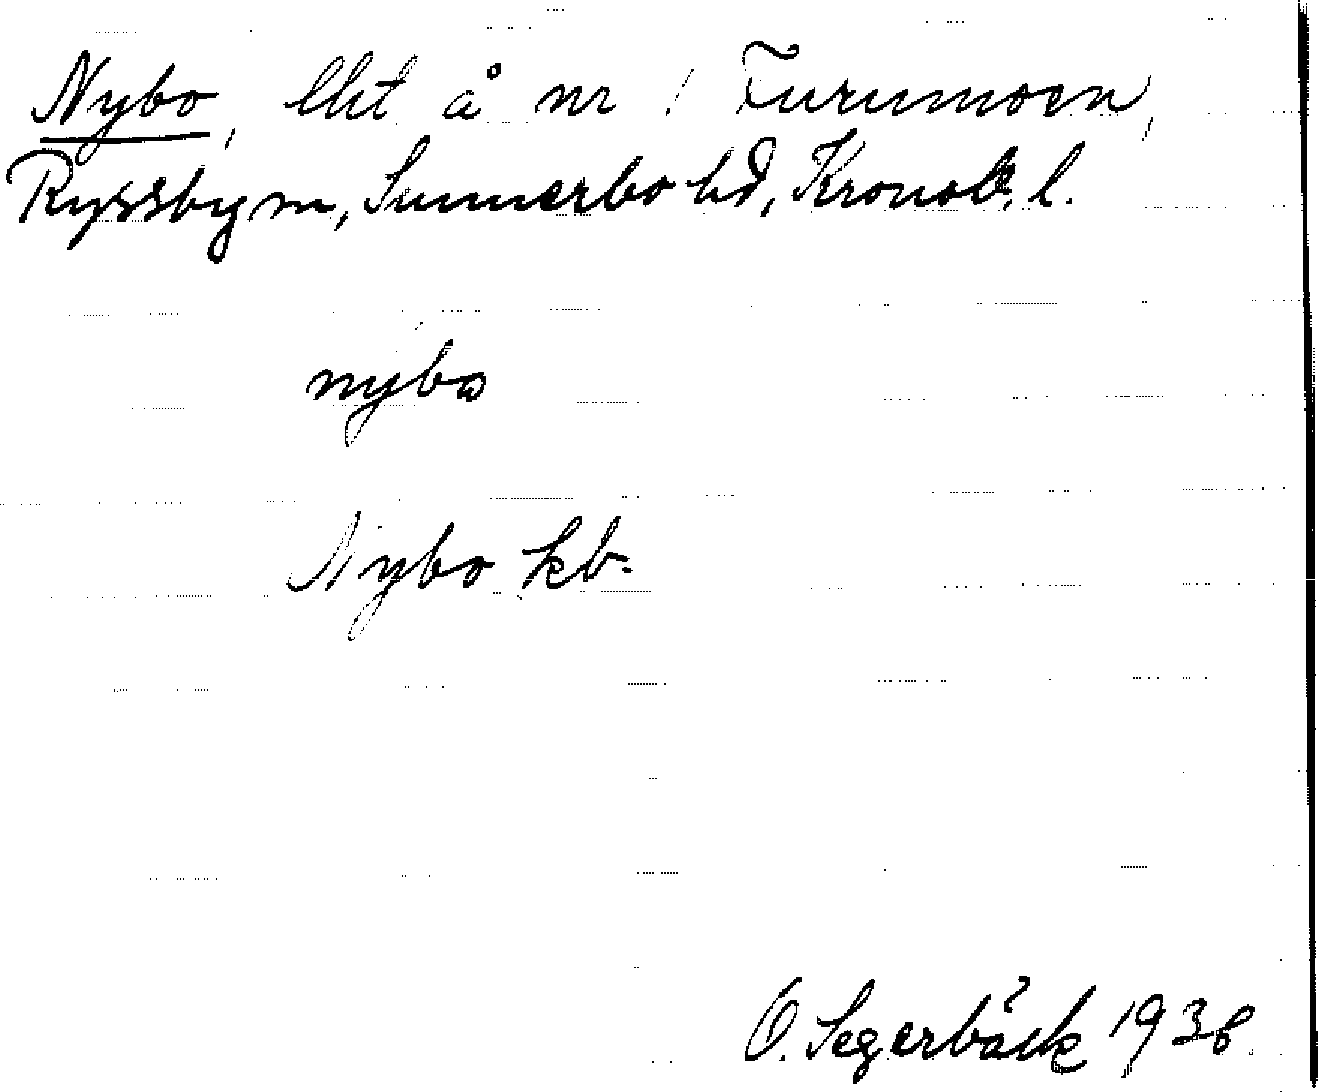 Nybo, lht å nr 1 Furumoen,
Ryssby sn, Sunnerbo hd, Kronob. l.
nybω
Nybo kb.
O. Segerbäck 1938